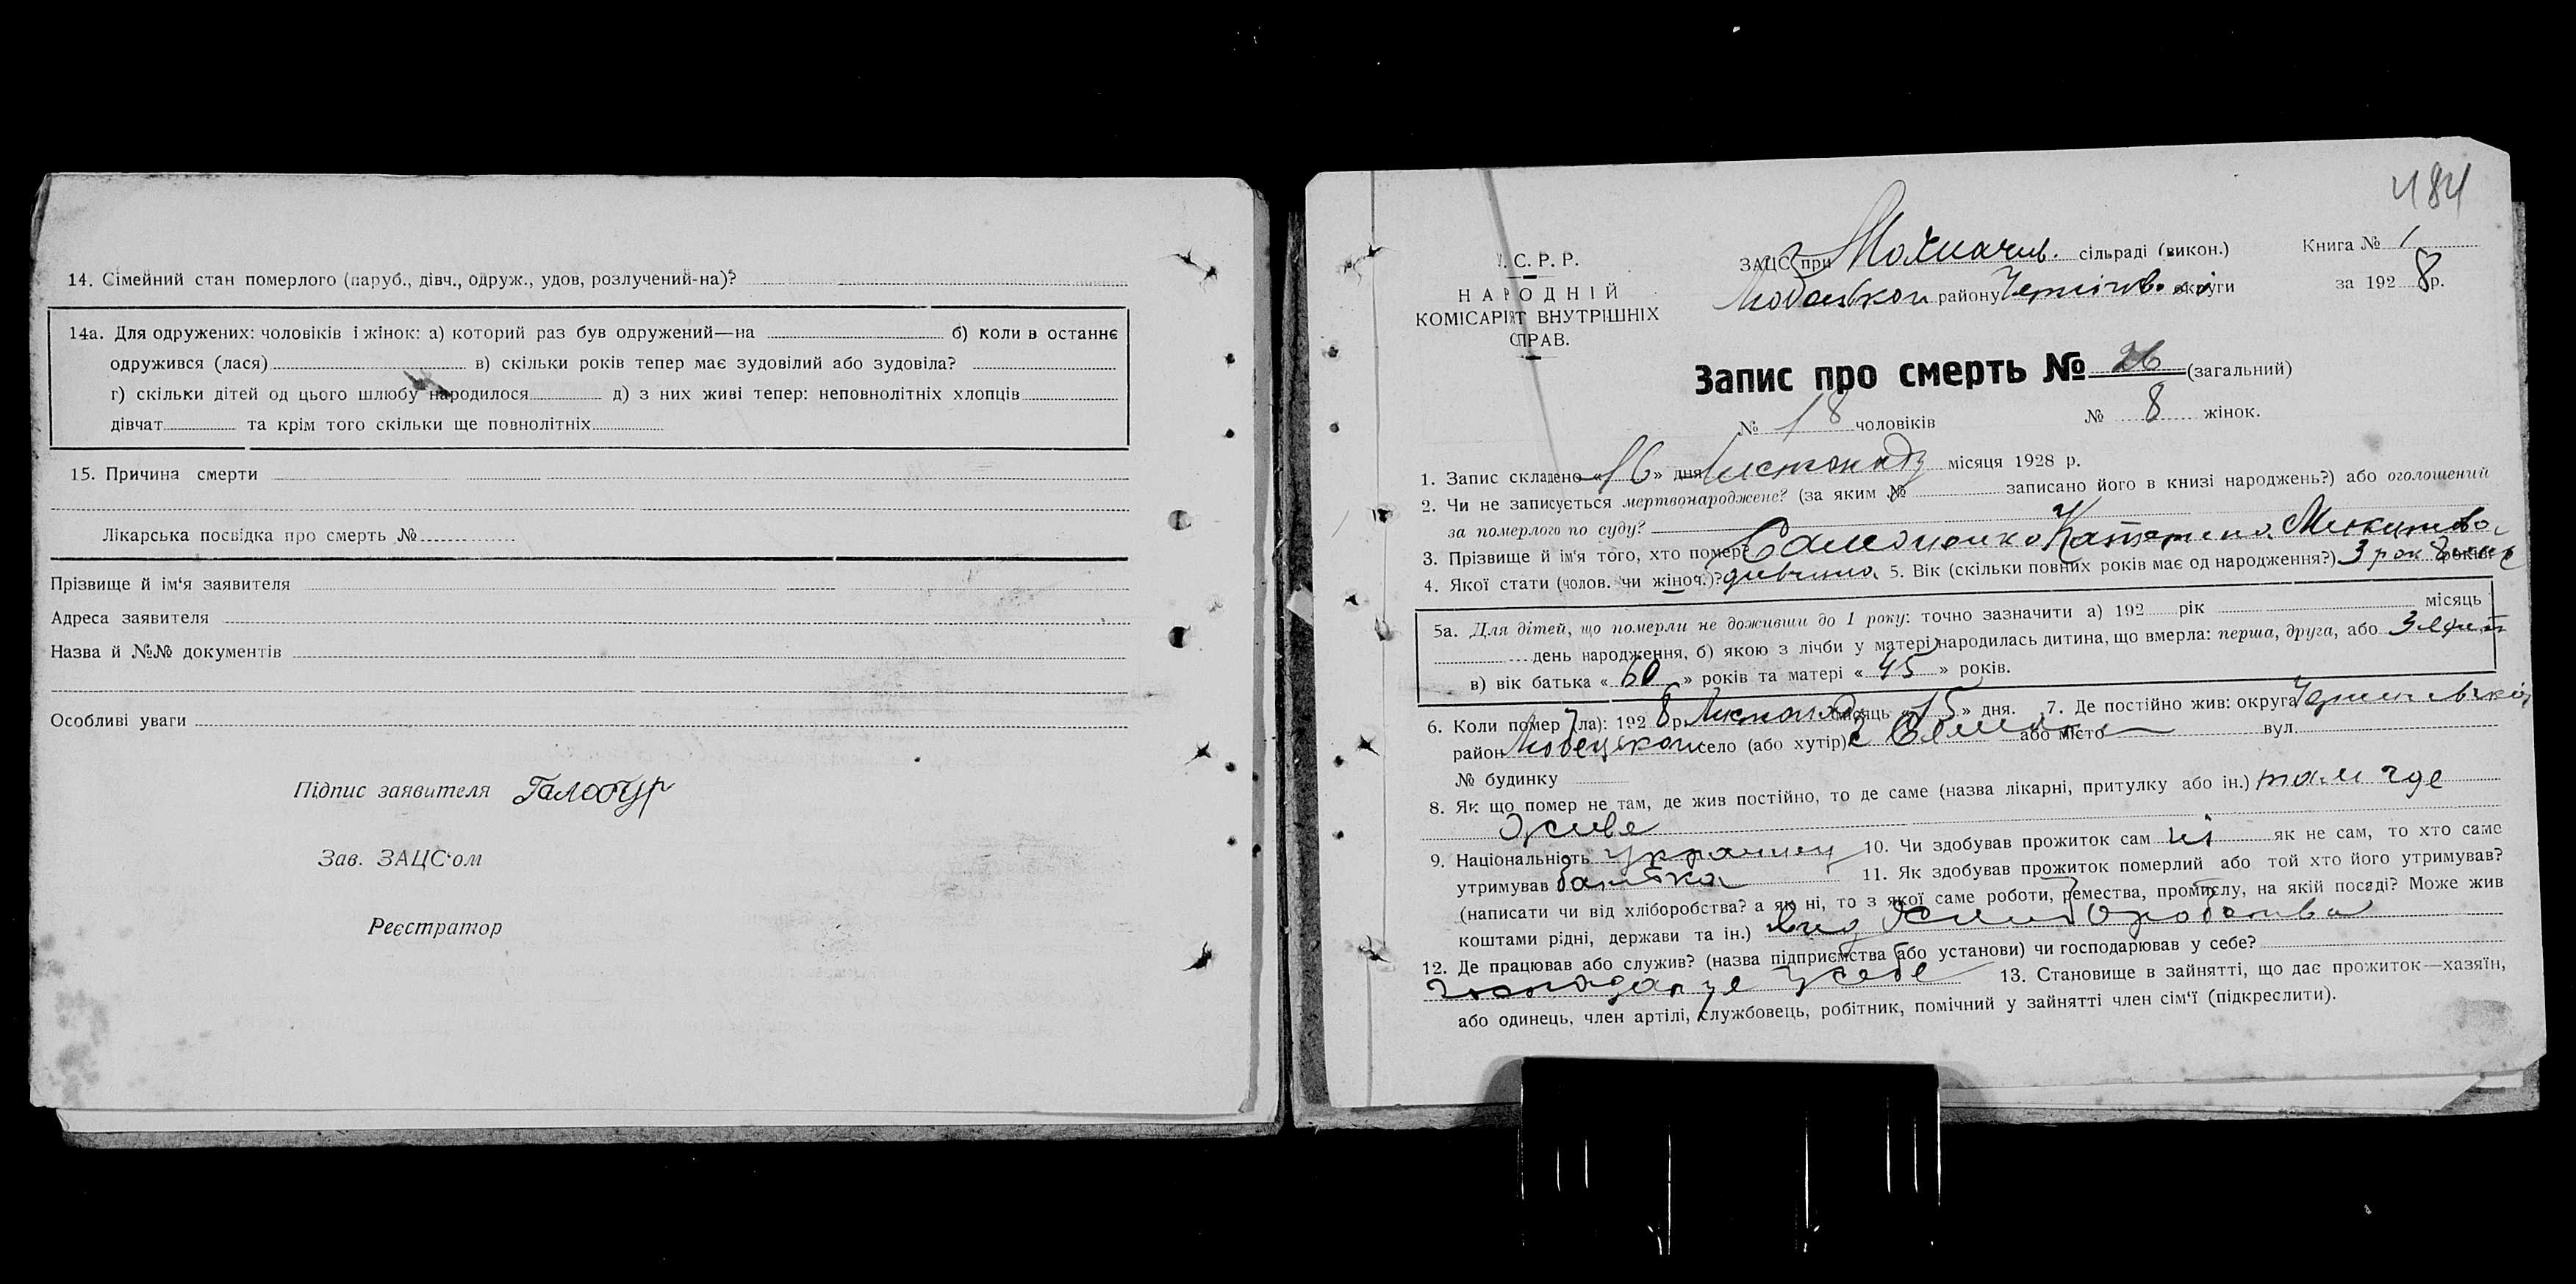 14. Сімейний стан померлого (паруб., дівч., одруж., удов, розлучений-на)?
14а. Для одружених: чоловіків і жінок: а) котрий раз був одружений—на б) коли в останнє
одружився (лася) в) скільки років тепер має зудовілий або зудовіла?
г) скільки дітей од цього шлюбу народилося д) з них живі тепер: неповнолітніх хлопців
дівчат та крім того скільки ще повнолітніх
15. Причина смерти
Лікарська посвідка про смерть №
Прізвище й ім'я заявителя
Адреса заявителя
Назва й №№ документів
Особливі уваги
Підпис заявителя
Зав. ЗАЦС'ом
Реєстратор
484
.С.Р.Р.
НАРОДНІЙ
КОМІСАРІЯТ ВНУТРІШНІХ
СПРАВ.
ЗАЦС при сільраді (викон.)
району округи
Книга № 1
за 1928 р.
Запис про смерть № 26 (загальний)
№ 18 чоловіків № 8 жінок.
1. Запис складено «16» дня листопада місяця 1928 р.
2. Чи не записується мертвонароджене? (за яким № записано його в книзі народжень?) або оголошений
за померлого по суду?
3. Прізвище й ім'я того, хто помер Катерина
4. Якої стати (чолов. чи жіноч.)? дивчина 5. Вік (скільки повних років має од народження?) 3 рок 8 років
5а. Для дітей, що померли не доживши до 1 року: точно зазначити а) 192 рік місяць
день народження, б) якою з лічби у матері народилась дитина, що вмерла: перша, друга, або 3
в) вік батька «60» років та матері «45» років.
6. Коли помер (ла): 1928 р. листопад місяць «15» дня. 7. Де постійно жив: округа
район село (або хутір) або місто вул.
№ будинку
8. Як що помер не там, де жив постійно, то де саме (назва лікарні, притулку або ін.) там где
живе
9. Національність украинец 10. Чи здобував прожиток сам ні як не сам, то хто саме
утримував батько 11. Як здобував прожиток померлий або той хто його утримував?
(написати чи від хліборобства? а як ні, то з якої саме роботи, ремества, промислу, на якій посаді? Може жив
коштами рідні, держави та ін.) від
12. Де працював або служив? (назва підприємства або установи) чи господарював у себе?
господарує у себе 13. Становище в зайнятті, що дає прожиток—хазяїн,
або одинець, член артілі, службовець, робітник, помічний у зайнятті член сім'ї (підкреслити).